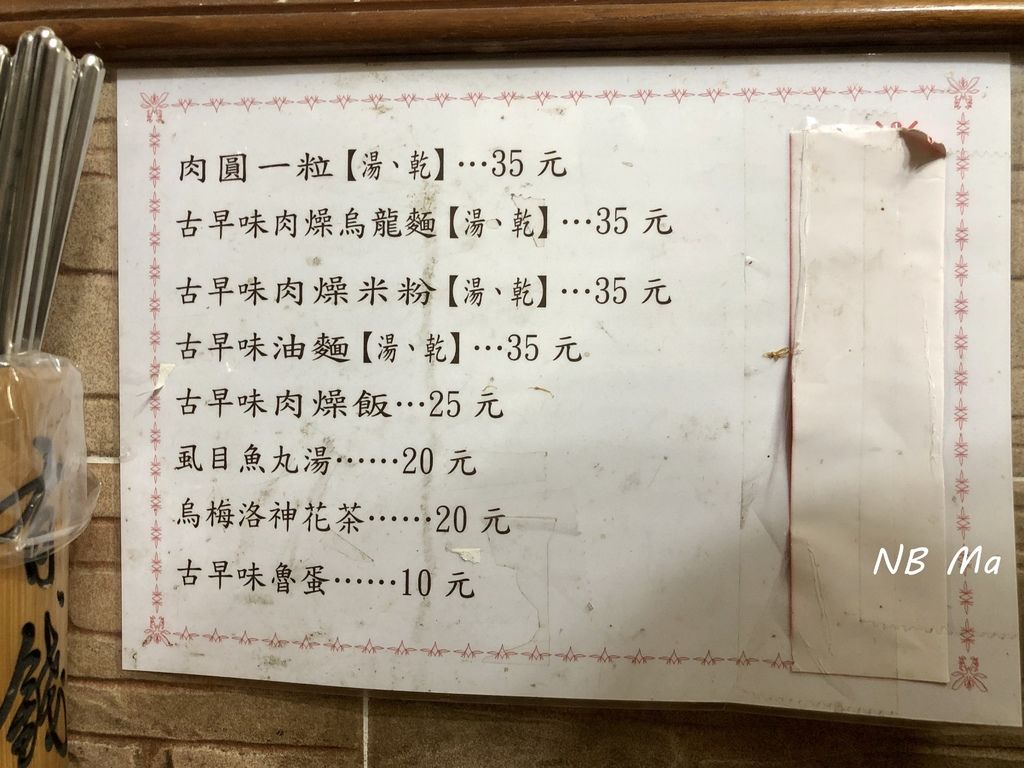 肉圓一粒【湯、乾】…35 元
古早味肉燥烏龍麵【湯、乾】…35 元
古早味肉燥米粉【湯、乾】…35 元
古早味油麵【湯、乾】…35 元
古早味肉燥飯…25 元
虱目魚丸湯……20 元
烏梅洛神花茶……20 元
古早味魯蛋……10 元
NB Ma